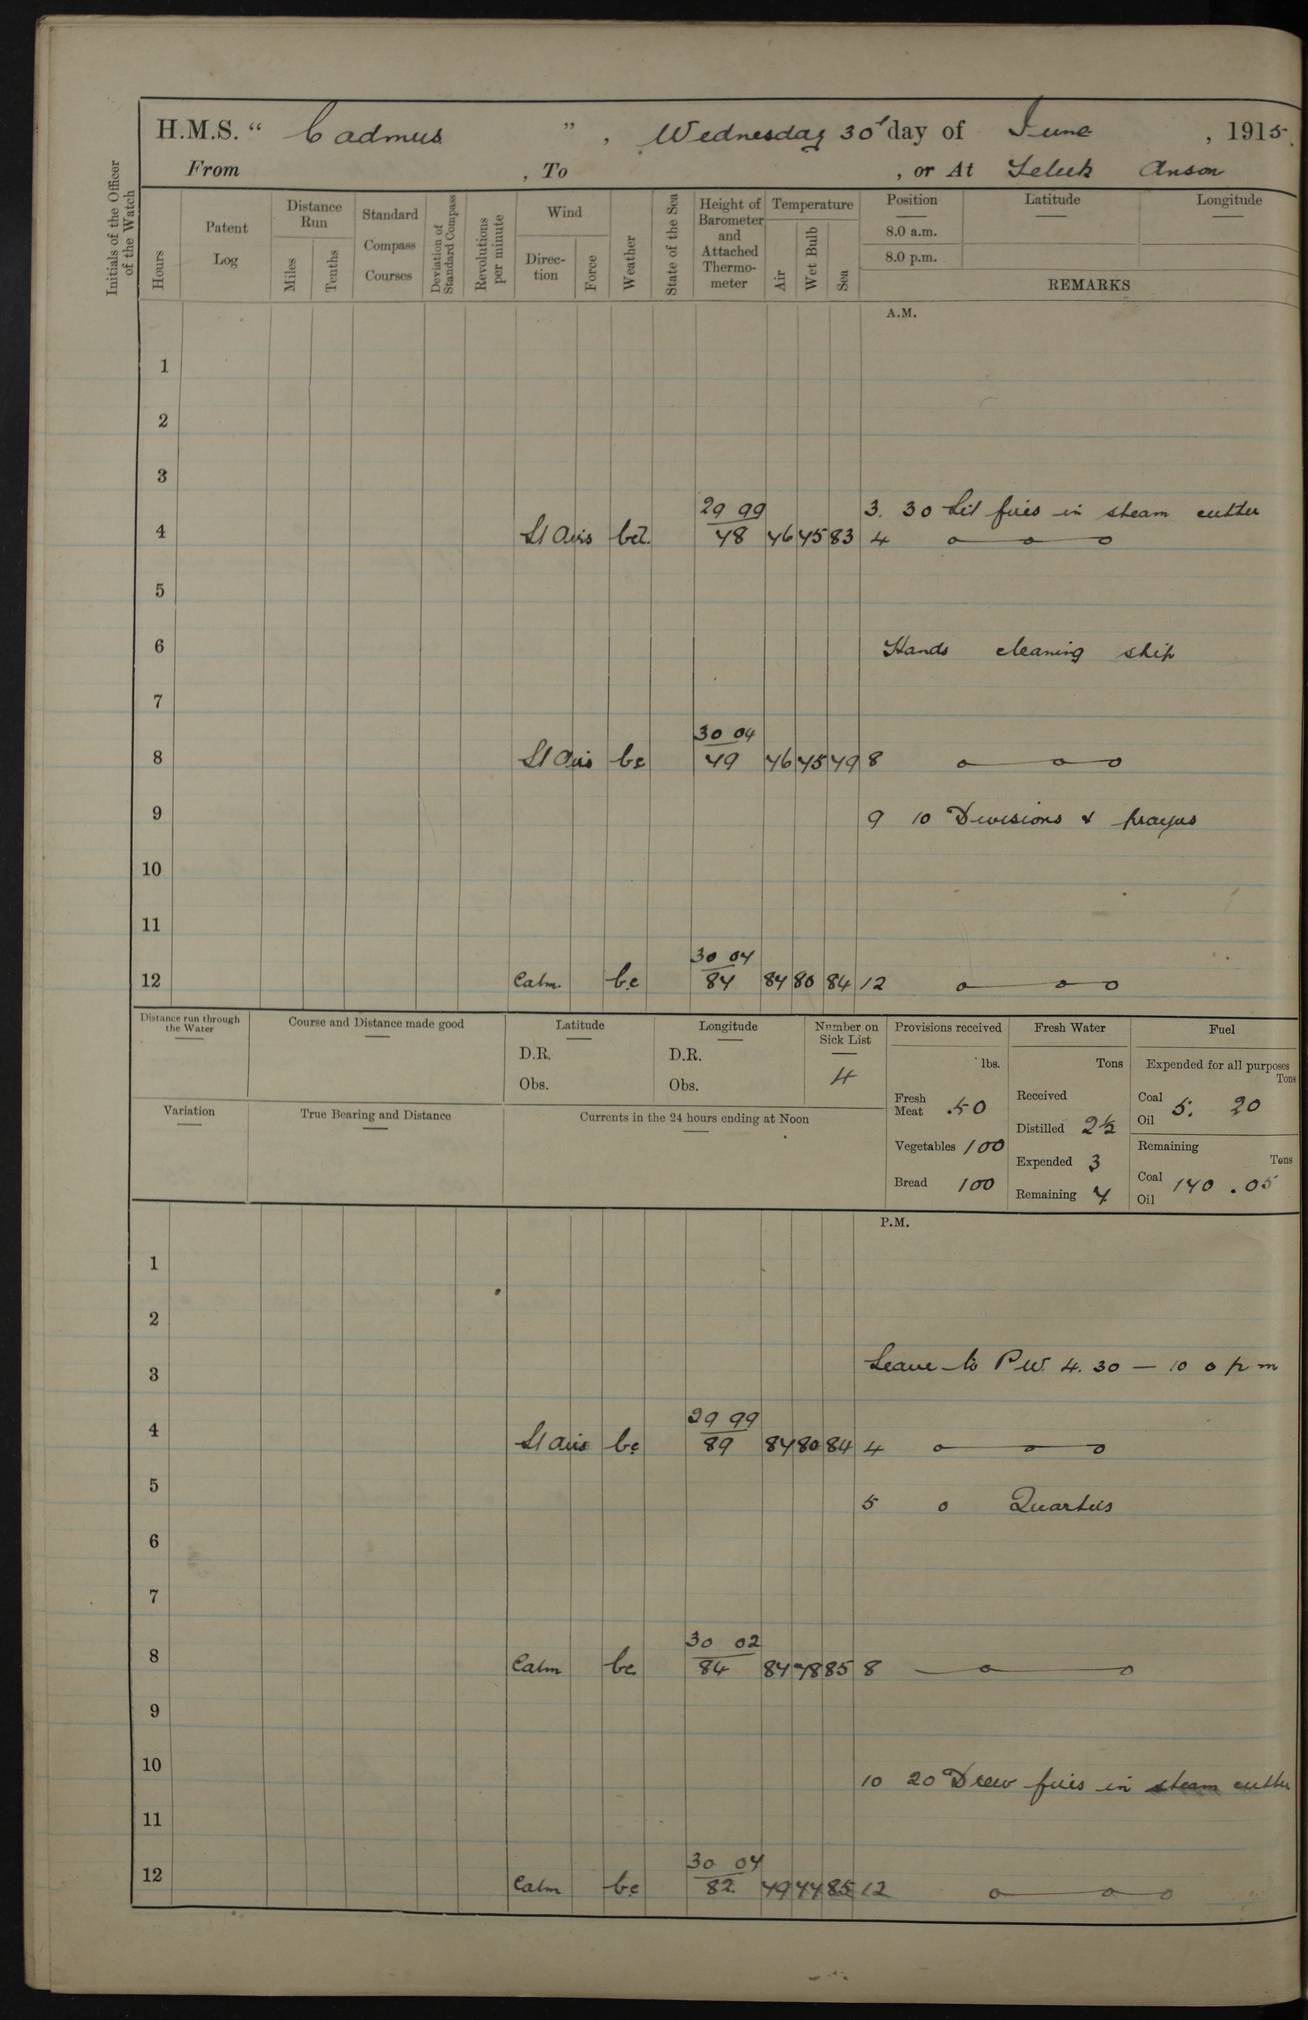 H.M.S. “ Cadmus ” , Wednesday 30 day of June , 1915.
From , To , or At Teluk Anson
Initials of the Officer of the Watch
Hours
Patent Log
Distance Run
Miles
Tenths
Standard Compass Courses
Deviation of Standard Compass
Revolutions per minute
Wind
Direction
Force
Weather
State of the Sea
Height of Barometer and Attached Thermometer
Temperature
Air
Wet Bulb
Sea
Position
8.0 a.m.
8.0 p.m.
Latitude
Longitude
REMARKS
A.M.
1
2
3
29 99 3. 30 Lit fires in steam cutter
4 Lt Airs 78 76 75 83 4 o o o
5
6 Hands cleaning ship
7
30 04
8 Lt Airs bc 79 76 75 79 8 o o o
9 9 10 Divisions & prayers
10
11
30 04
12 Calm bc 84 84 80 84 12 o o o
Distance run through the Water
Course and Distance made good
Latitude
D.R.
Obs.
Longitude
D.R.
Obs.
Number on Sick List
4
Variation
True Bearing and Distance
Currents in the 24 hours ending at Noon
Provisions received
lbs.
Fresh Meat 50
Vegetables 100
Bread 100
Fresh Water
Tons
Received
Distilled 2½
Expended 3
Remaining 7
Fuel
Expended for all purposes
Tons
Coal 5. 20
Oil
Remaining
Tons
Coal 140 .05
Oil
P.M.
1
2
3 Leave to P.W. 4. 30 — 10 0 p m
29 99
4 Lt airs bc 89 84 80 84 4 o o o
5 5 o Quarters
6
7
30 02
8 Calm bc 84 84 78 85 8 o o
9
10 10 20 Drew fires in steam cutter
11
30 04
12 Calm bc 82 79 77 85 12 o o o